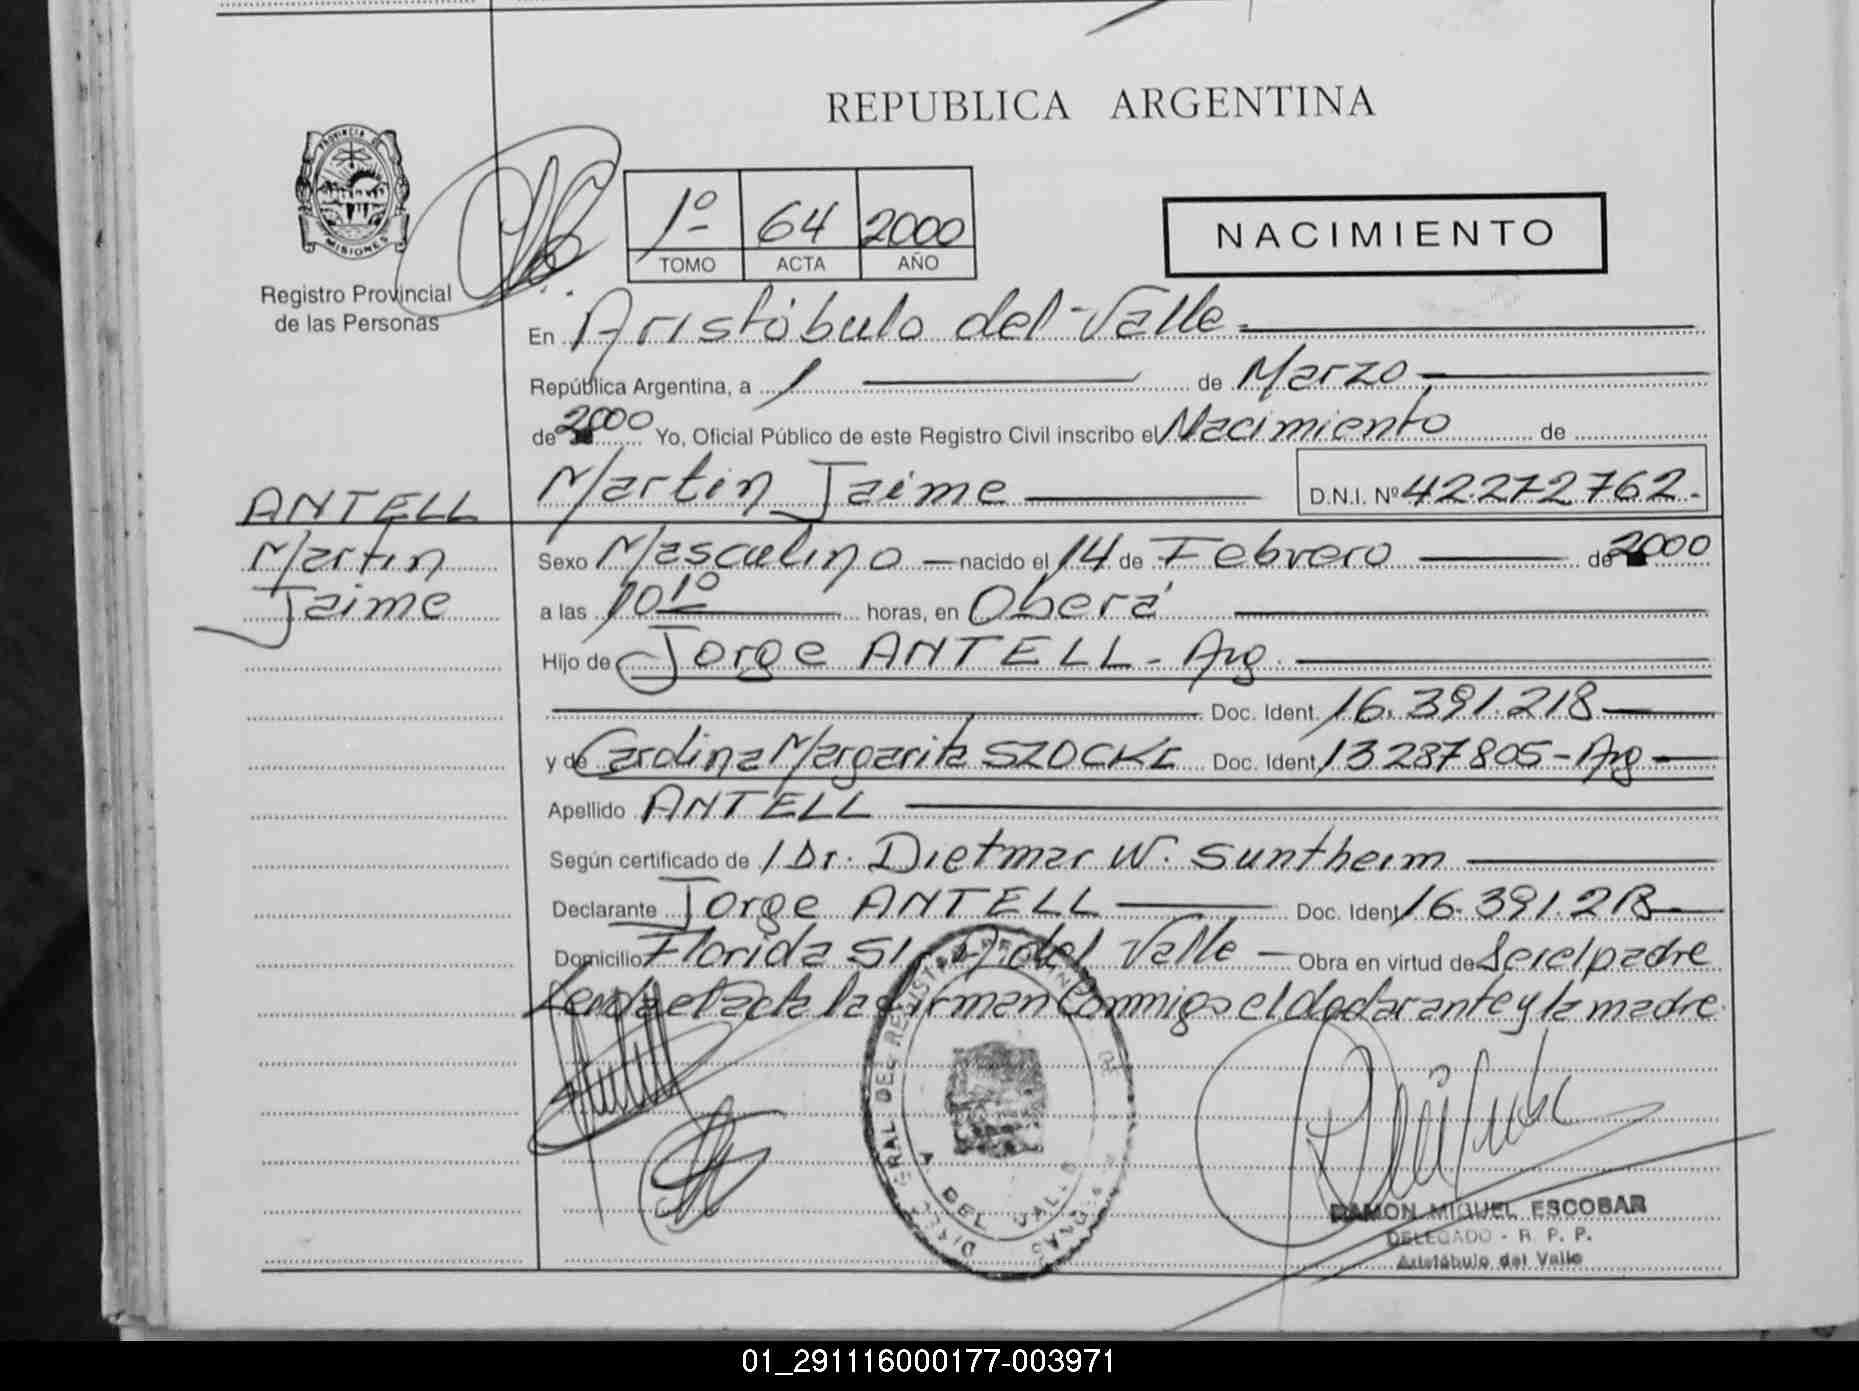 REPUBLICA ARGENTINA
PROVINCIA DE
MISIONES
Registro Provincial
de las Personas
1º 64 2000
TOMO ACTA AÑO
NACIMIENTO
En Aristóbulo del Valle
República Argentina, a 1 de Marzo
de 2000 Yo, Oficial Público de este Registro Civil inscribo el Nacimiento de
Martin Jaime D.N.I. Nº 42.272.762.
ANTELL
Martin
Jaime
Sexo Masculino nacido el 14 de Febrero de 2000
a las 10 10 horas, en Oberá
Hijo de Jorge ANTELL - Arg.
Doc. Ident. 16.391.218
y de Carolina Margarita Doc. Ident. 13287805 - Arg
Apellido ANTELL
Según certificado de / Dr. Dietmar W. Suntheim
Declarante Jorge ANTELL Doc. Ident. 16.391.218
Domicilio Florida del Valle Obra en virtud de Ser el padre
el acta la firman Conmigo el declarante y la madre.
DEL VALLE
RAMON MIGUEL ESCOBAR
DELEGADO - R. P. P.
Aristóbulo del Valle
01_291116000177-003971